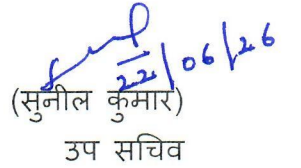 22/06/26
(सुनील कुमार)
उप सचिव